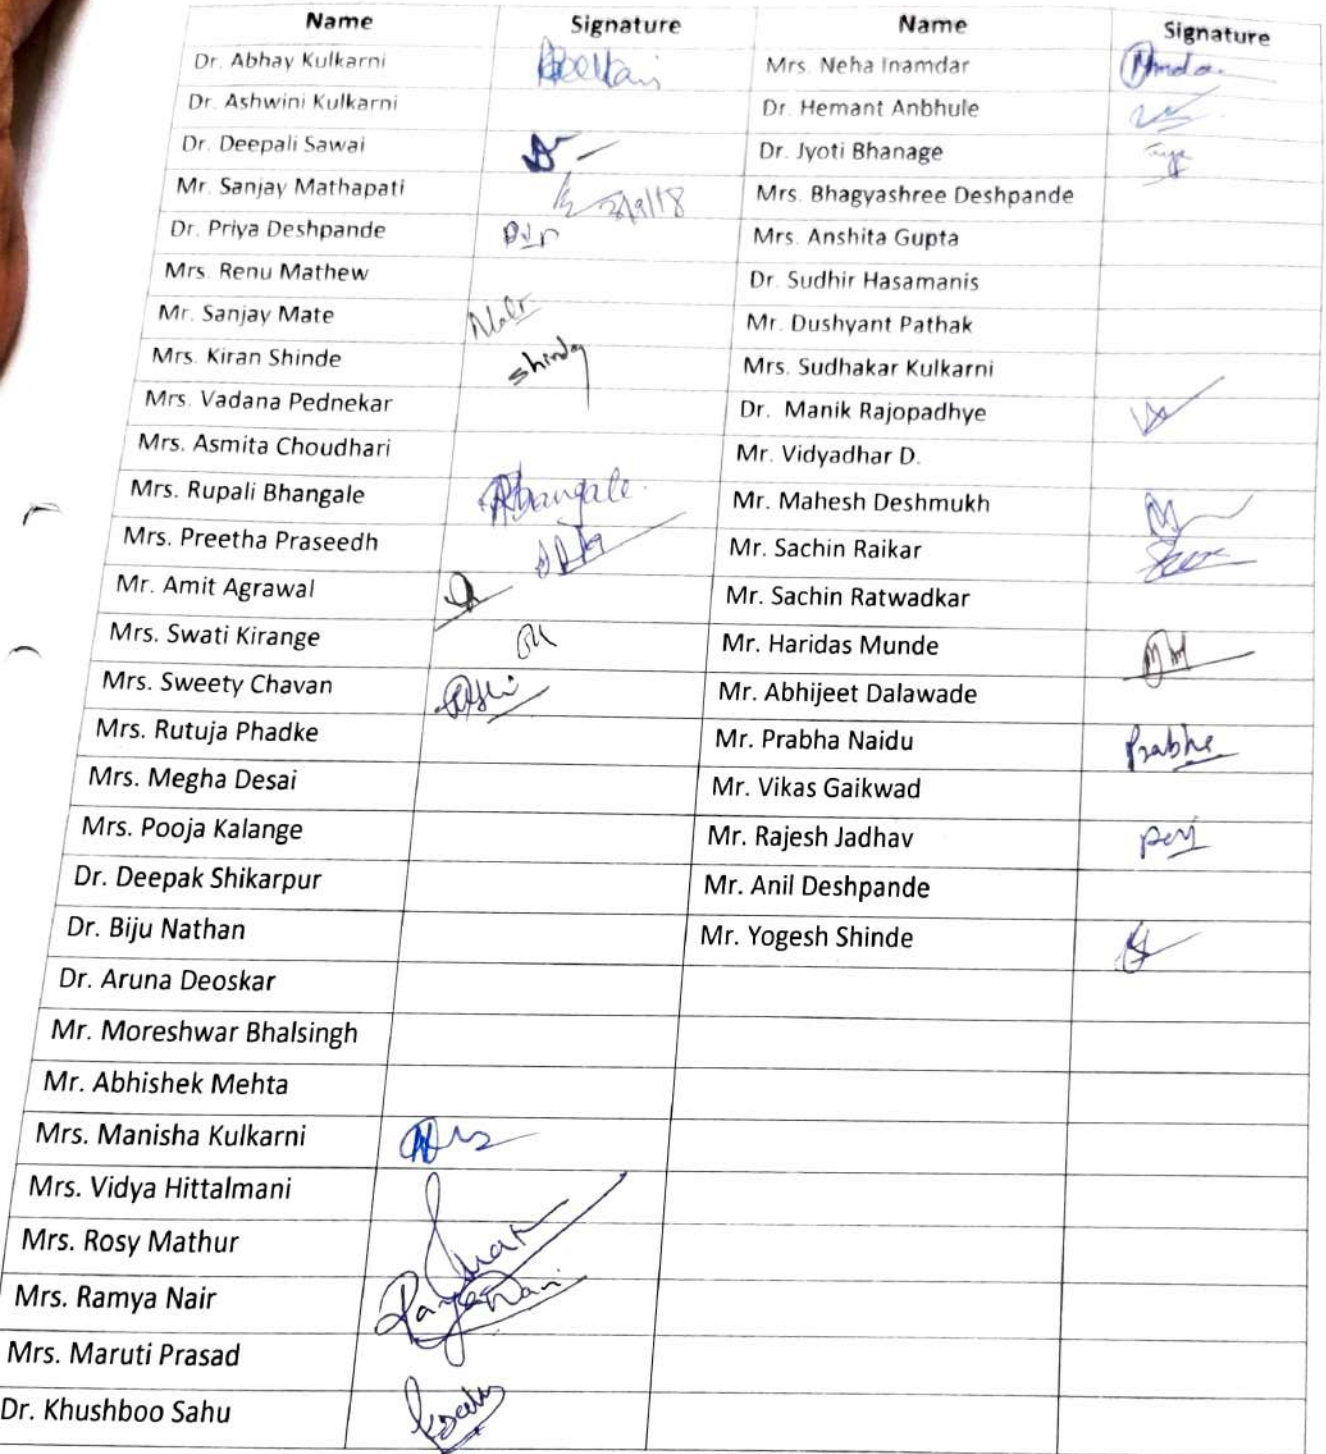 Name Signature Name Signature
Dr. Abhay Kulkarni Mrs. Neha Inamdar
Dr. Ashwini Kulkarni Dr. Hemant Anbhule
Dr. Deepali Sawai Dr. Jyoti Bhanage
Mr. Sanjay Mathapati Mrs. Bhagyashree Deshpande
Dr. Priya Deshpande Mrs. Anshita Gupta
Mrs. Renu Mathew Dr. Sudhir Hasamanis
Mr. Sanjay Mate Mr. Dushyant Pathak
Mrs. Kiran Shinde Shinde Mrs. Sudhakar Kulkarni
Mrs. Vadana Pednekar Dr. Manik Rajopadhye
Mrs. Asmita Choudhari Mr. Vidyadhar D.
Mrs. Rupali Bhangale RBhangale. Mr. Mahesh Deshmukh
Mrs. Preetha Praseedh Mr. Sachin Raikar
Mr. Amit Agrawal Mr. Sachin Ratwadkar
Mrs. Swati Kirange Mr. Haridas Munde
Mrs. Sweety Chavan Mr. Abhijeet Dalawade
Mrs. Rutuja Phadke Mr. Prabha Naidu Prabha
Mrs. Megha Desai Mr. Vikas Gaikwad
Mrs. Pooja Kalange Mr. Rajesh Jadhav
Dr. Deepak Shikarpur Mr. Anil Deshpande
Dr. Biju Nathan Mr. Yogesh Shinde
Dr. Aruna Deoskar
Mr. Moreshwar Bhalsingh
Mr. Abhishek Mehta
Mrs. Manisha Kulkarni
Mrs. Vidya Hittalmani
Mrs. Rosy Mathur
Mrs. Ramya Nair
Mrs. Maruti Prasad
Dr. Khushboo Sahu